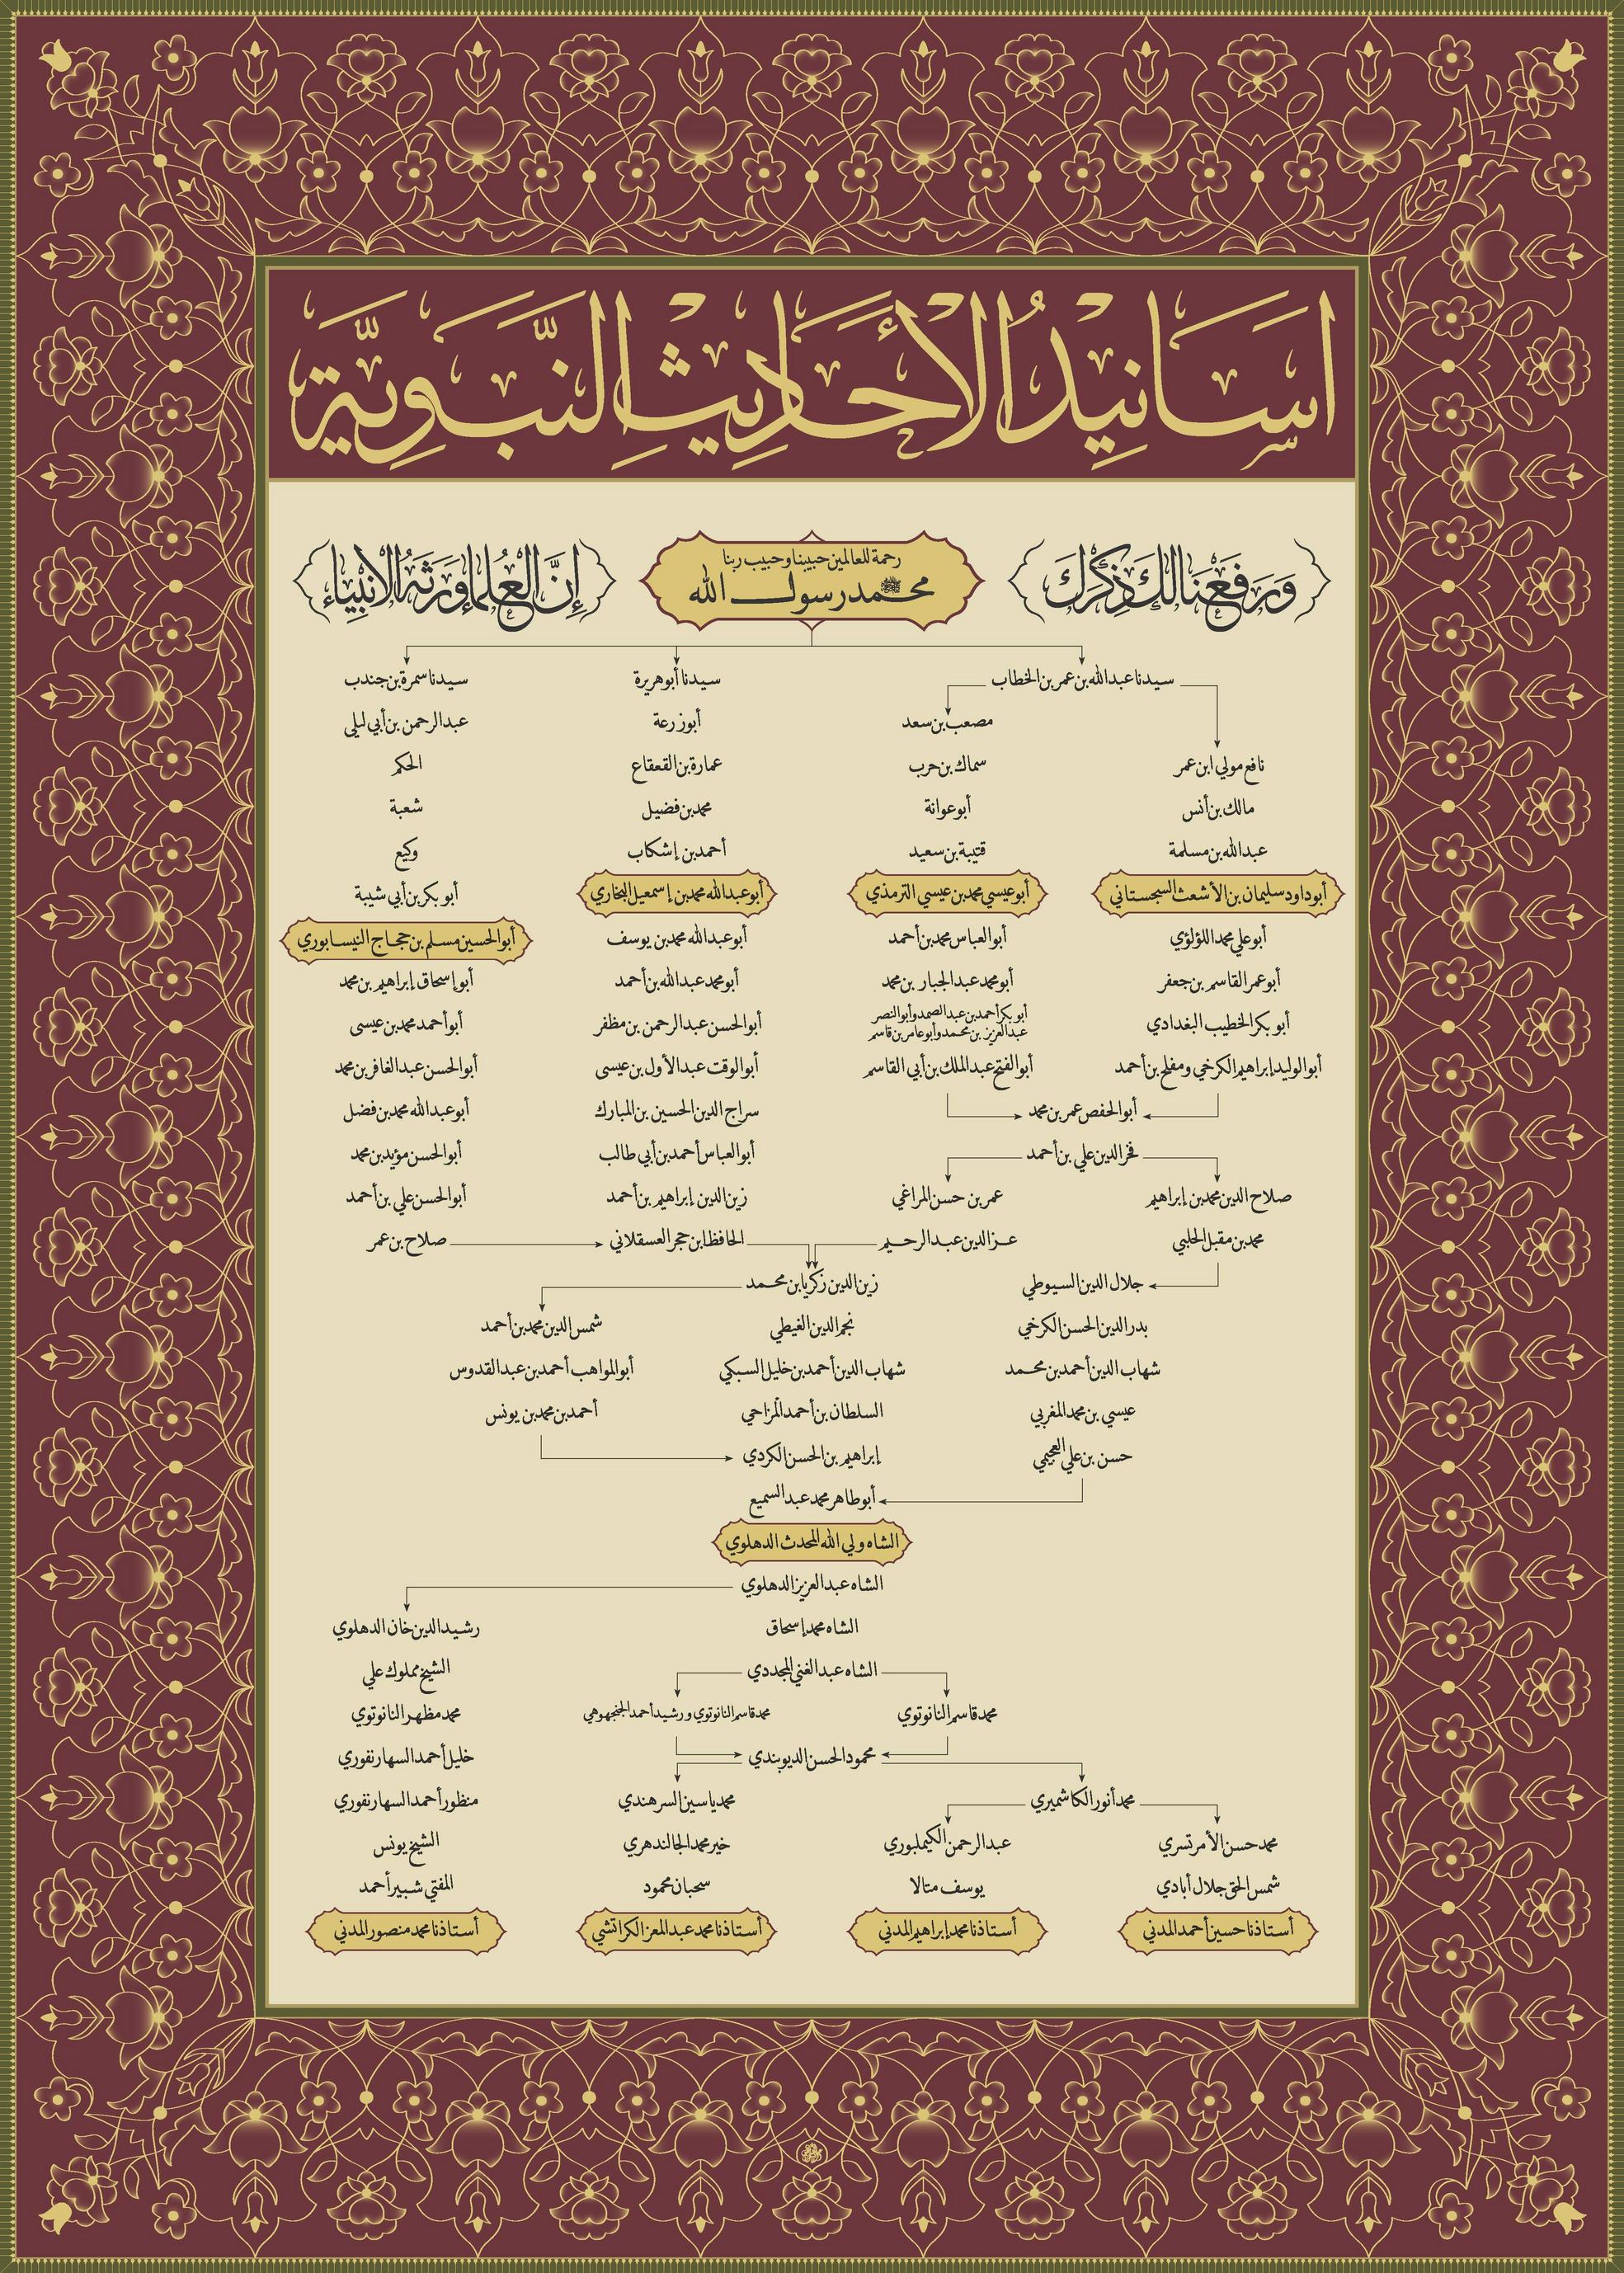 اسَانِيدُ الْأَحَادِيثِ النَّبَوِيَّةِ
وَرَفَعْنَا لَكَ ذِكْرَكَ
رحمة للعالمين حبيبنا وحبيب ربنا
محمد رسول الله ﷺ
إِنَّ الْعُلَمَاءَ وَرَثَةُ الْأَنْبِيَاءِ
سيدنا عبدالله بن عمر بن الخطاب
سيدنا أبو هريرة
سيدنا سمرة بن جندب
مصعب بن سعد
أبو زرعة
عبدالرحمن بن أبي ليلى
نافع مولي ابن عمر
سماك بن حرب
عمارة بن القعقاع
الحكم
مالك بن أنس
أبو عوانة
محمد بن فضيل
شعبة
عبدالله بن مسلمة
قتيبة بن سعيد
أحمد بن إشكاب
وكيع
أبو داود سليمان بن الأشعث السجستاني
أبو عيسي محمد بن عيسي الترمذي
أبو عبدالله محمد بن إسمعيل البخاري
أبو بكر بن أبي شيبة
أبو علي محمد اللؤلؤي
أبو العباس محمد بن أحمد
أبو عبدالله محمد بن يوسف
أبو الحسين مسلم بن حجاج النيسابوري
أبو عمر القاسم بن جعفر
أبو محمد عبدالجبار بن محمد
أبو محمد عبدالله بن أحمد
أبو إسحاق إبراهيم بن محمد
أبو بكر الخطيب البغدادي
أبو بكر أحمد بن عبدالصمد وأبو النصر
عبدالعزيز بن محمد وأبو عامر بن قاسم
أبو الحسن عبدالرحمن بن مظفر
أبو أحمد محمد بن عيسى
أبو الوليد إبراهيم الكرخي ومفلح بن أحمد
أبو الفتح عبدالملك بن أبي القاسم
أبو الوقت عبدالأول بن عيسى
أبو الحسن عبدالغافر بن محمد
أبو الحفص عمر بن محمد
سراج الدين الحسين بن المبارك
أبو عبدالله محمد بن فضل
فخر الدين علي بن أحمد
أبو العباس أحمد بن أبي طالب
أبو الحسن مؤيد بن محمد
صلاح الدين محمد بن إبراهيم
عمر بن حسن المراغي
زين الدين إبراهيم بن أحمد
أبو الحسن علي بن أحمد
محمد بن مقبل الحلبي
عز الدين عبدالرحيم
الحافظ ابن حجر العسقلاني
صلاح بن عمر
جلال الدين السيوطي
زين الدين زكريا بن محمد
بدر الدين الحسن الكرخي
نجم الدين الغيطي
شمس الدين محمد بن أحمد
شهاب الدين أحمد بن محمد
شهاب الدين أحمد بن خليل السبكي
أبو المواهب أحمد بن عبدالقدوس
عيسي بن محمد المغربي
السلطان بن أحمد المزاحي
أحمد بن محمد بن يونس
حسن بن علي العجيمي
إبراهيم بن الحسن الكردي
أبو طاهر محمد عبدالسميع
الشاه ولي الله المحدث الدهلوي
الشاه عبدالعزيز الدهلوي
الشاه محمد إسحاق
رشيد الدين خان الدهلوي
الشاه عبدالغني المجددي
الشيخ مملوك علي
محمد قاسم النانوتوي
محمد قاسم النانوتوي ورشيد أحمد الجنجوهي
محمد مظهر النانوتوي
محمود الحسن الديوبندي
خليل أحمد السهارنفوري
محمد أنور الكاشميري
محمد ياسين السرهندي
منظور أحمد السهارنفوري
محمد حسن الأمرتسري
عبدالرحمن الكيملبوري
خير محمد الجالندهري
الشيخ يونس
شمس الحق جلال أبادي
يوسف متالا
سحبان محمود
المفتي شبير أحمد
أستاذنا حسين أحمد المدني
أستاذنا محمد إبراهيم المدني
أستاذنا محمد عبدالمعز الكراتشي
أستاذنا محمد منصور المدني